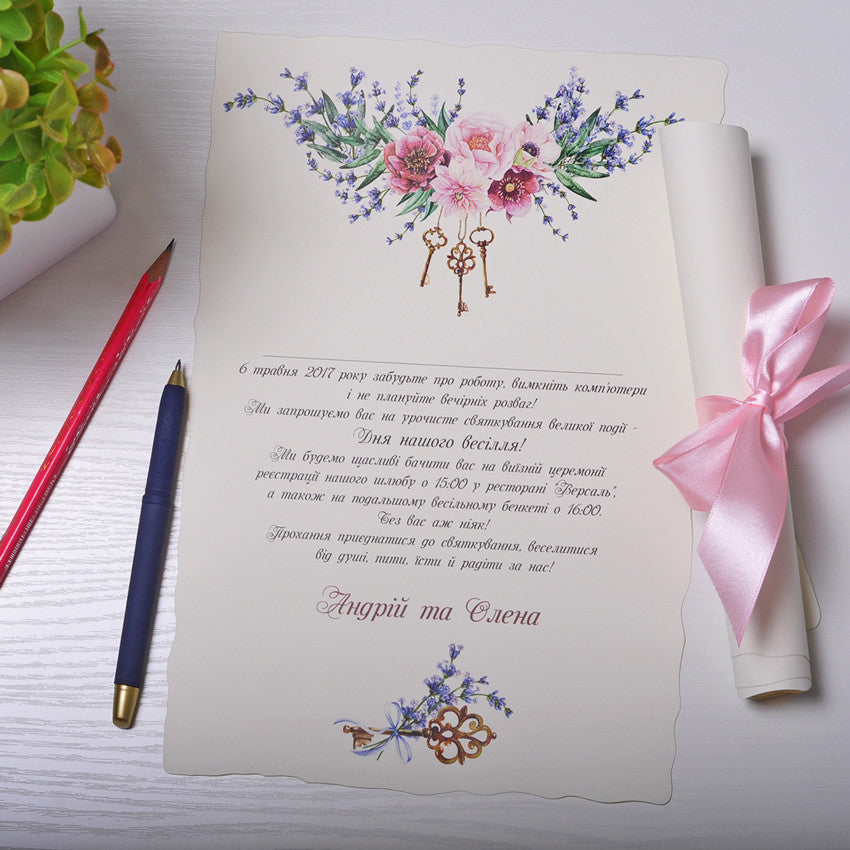 6 травня 2017 року забудьте про роботу, вимкніть комп'ютери
і не плануйте вечірніх розваг!
Ми запрошуємо вас на урочисте святкування великої події -
Дня нашого весілля!
Ми будемо щасливі бачити вас на виїзній церемонії
реєстрації нашого шлюбу о 15:00 у ресторані "Версаль",
а також на подальшому весільному бенкеті о 16:00.
Без вас аж ніяк!
Прохання приєднатися до святкування, веселитися
від душі, пити, їсти й радіти за нас!
Андрій та Олена